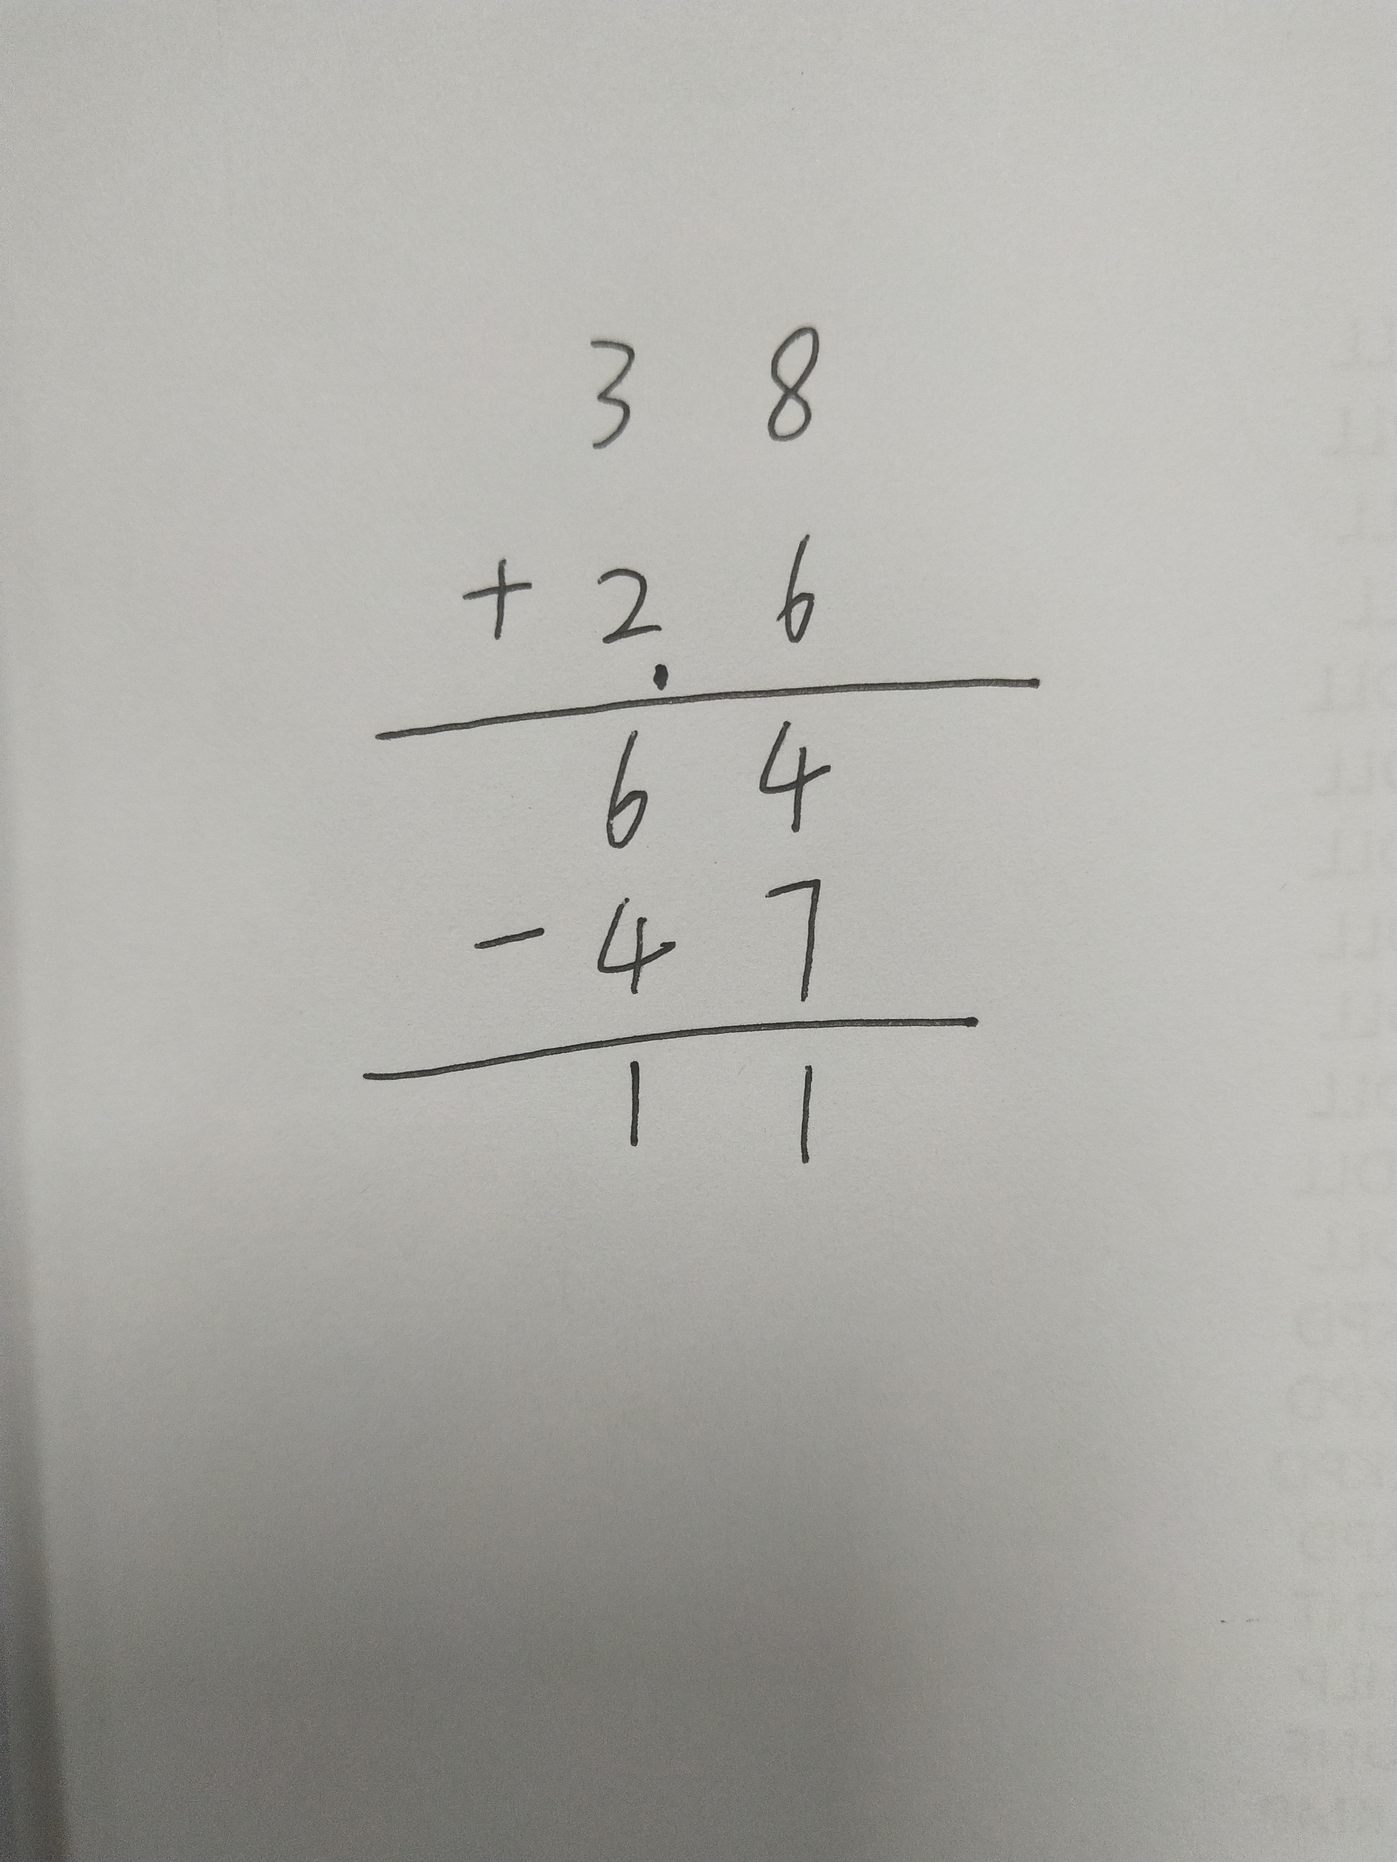 3 8
+ 2. 6
6 4
- 4 7
1 1